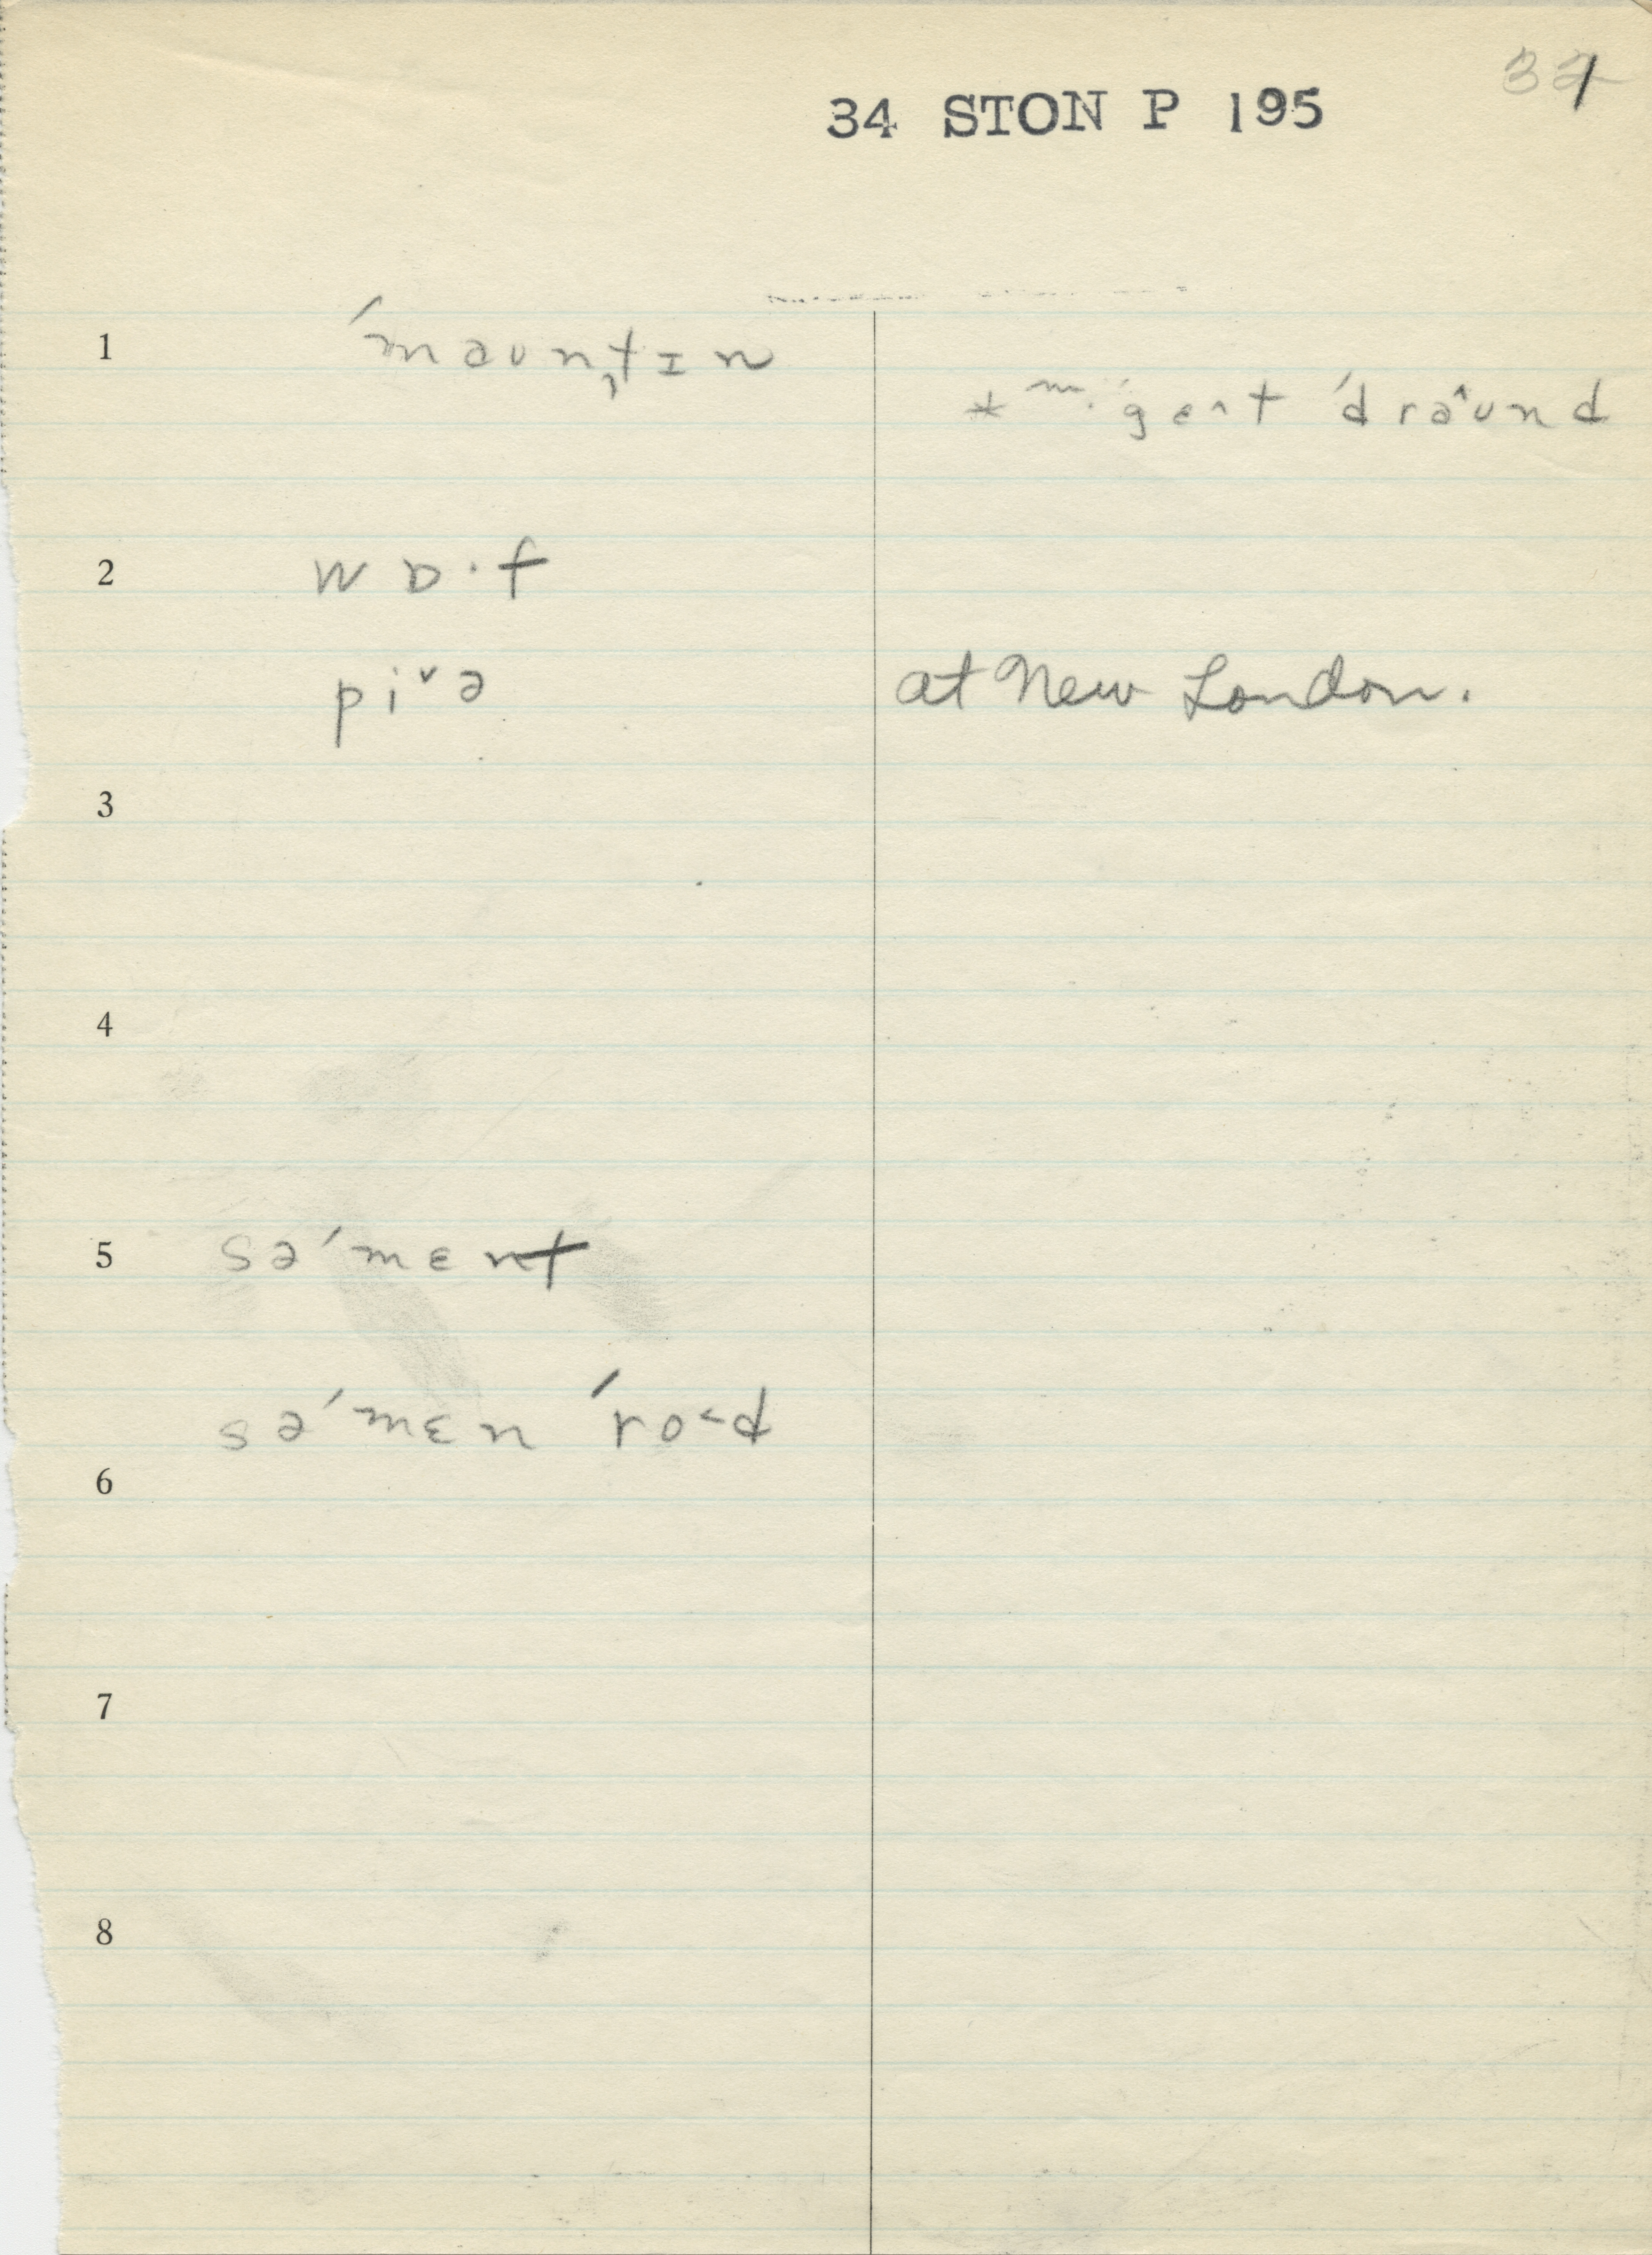 37
34 STON P 195
1 ˈmaunˌtɪn
* m. gɛ^t ˈdraˆund
2 wɒ·f
piˇə at New London.
3
4
5 səˈmɛnt
səˈmɛn ˈro˂d
6
7
8